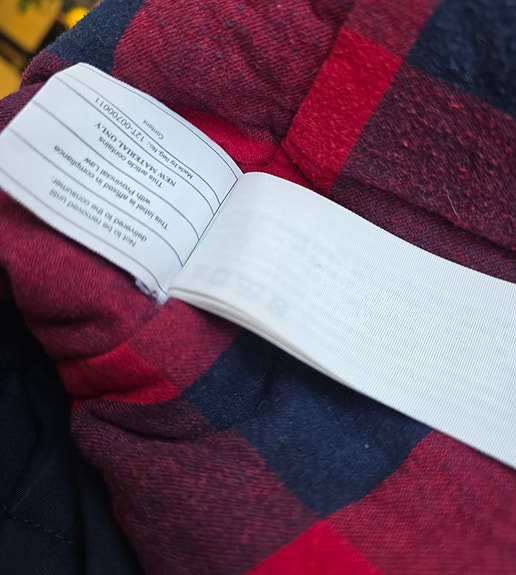 Not to be removed until
delivered to the consumer.
This label is affixed in compliance
with Provincial Law
This article contains
NEW MATERIAL ONLY
Made by Reg. No.: 12T-00700011
Content